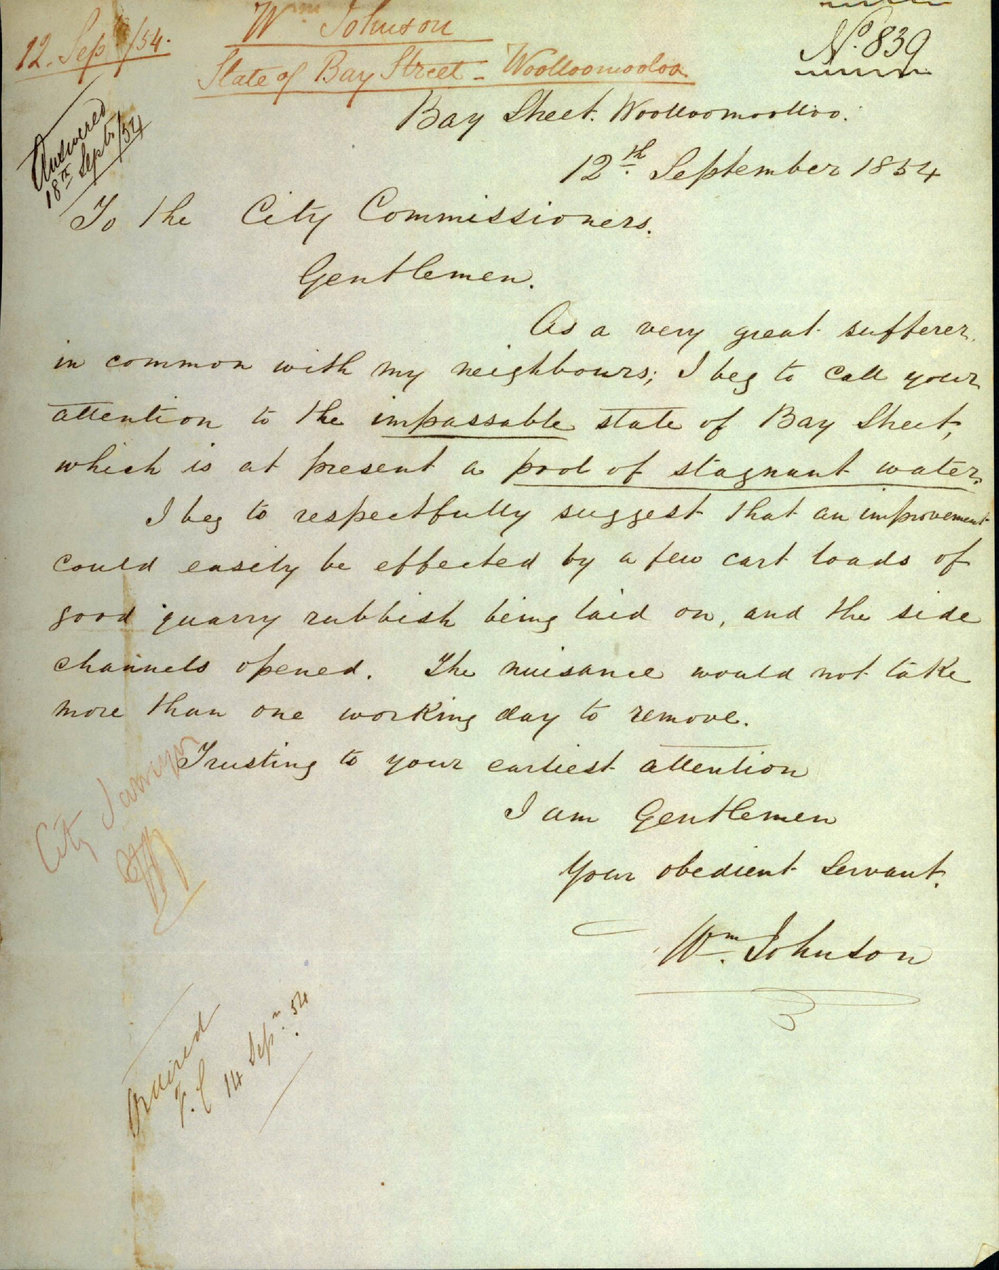 12. Sep/54.
Wm Johnson
State of Bay Street - Woolloomooloo
No. 839
Answered
18th Septr/54
Bay Street. Woolloomoolloo.
12th. September 1854
To the City Commissioners.
Gentlemen.
As a very great sufferer,
in common with my neighbours; I beg to call your
attention to the impassable state of Bay Street,
which is at present a pool of stagnant water.
I beg to respectfully suggest that an improvement
could easily be effected by a few cart loads of
good quarry rubbish being laid on, and the side
channels opened. The nuisance would not take
more than one working day to remove.
Trusting to your earliest attention
I am Gentlemen
Your obedient Servant.
Wm. Johnson
City Surveyor
Ordered
14 Sepr. 54